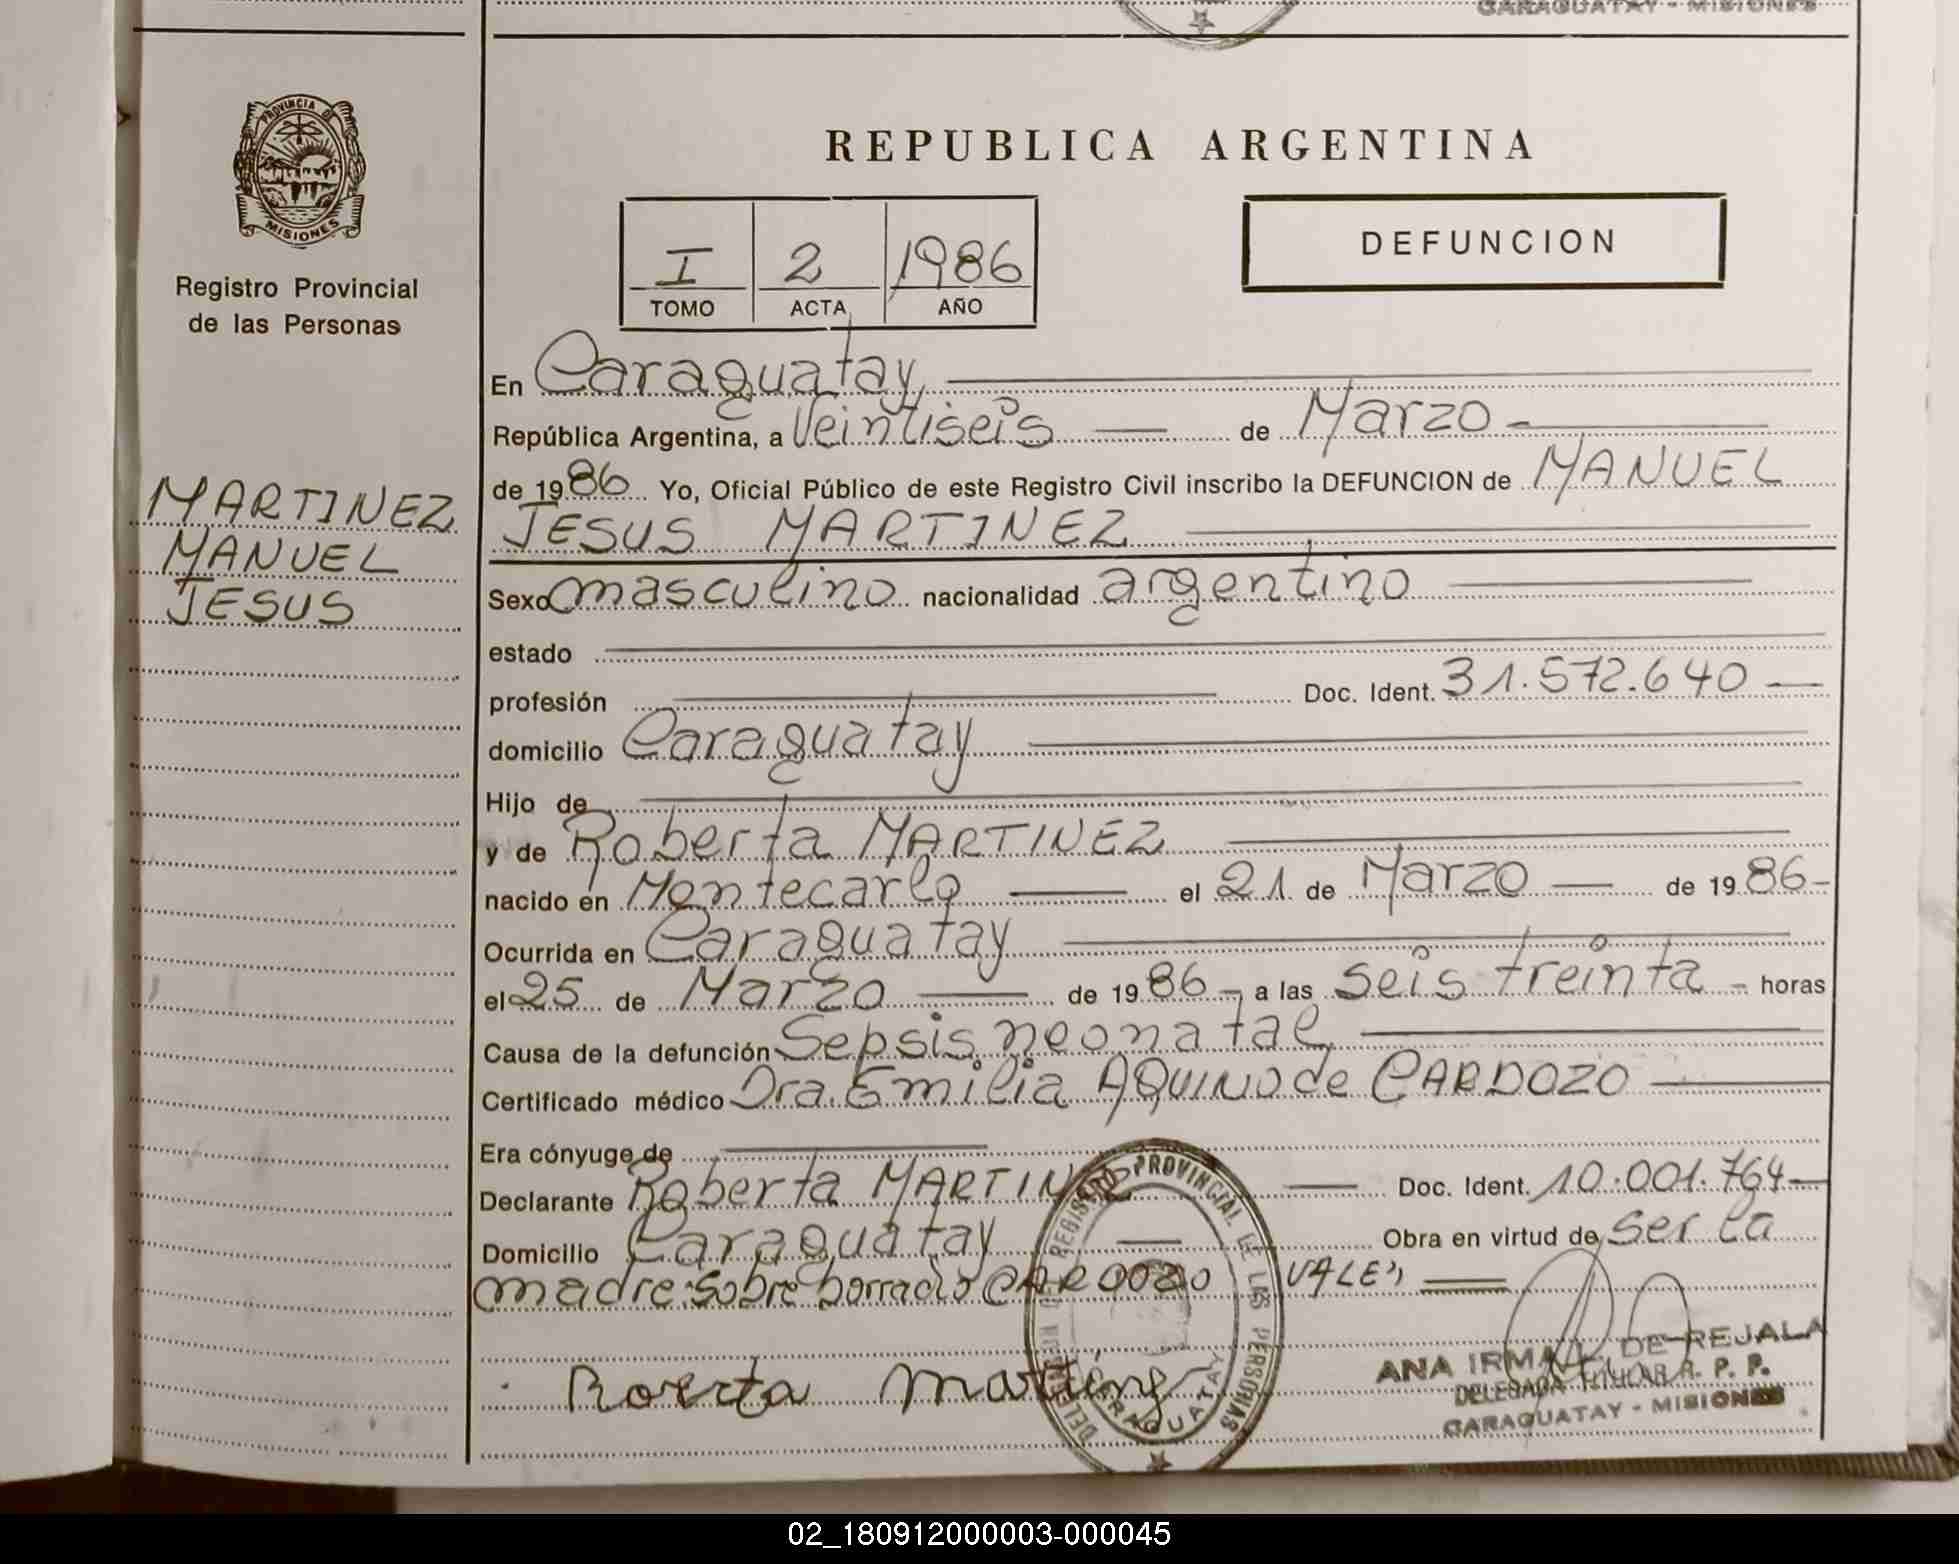 CARAGUATAY - MISIONES
PROVINCIA DE
MISIONES
Registro Provincial
de las Personas
MARTINEZ
MANUEL
JESUS
REPUBLICA ARGENTINA
I 2 1986
TOMO ACTA AÑO
DEFUNCION
En Caraguatay
República Argentina, a Veintiseis de Marzo
de 1986 Yo, Oficial Público de este Registro Civil inscribo la DEFUNCION de MANUEL
JESUS MARTINEZ
Sexo masculino nacionalidad argentino
estado
profesión Doc. Ident. 31.572.640
domicilio Caraguatay
Hijo de
y de Roberta MARTINEZ
nacido en Montecarlo el 21 de Marzo de 1986
Ocurrida en Caraguatay
el 25 de Marzo de 1986 a las seis treinta horas
Causa de la defunción Sepsis neonatal
Certificado médico Dra. Emilia AQUINO de CARDOZO
Era cónyuge de
Declarante Roberta MARTINEZ Doc. Ident. 10.001.764
Domicilio Caraguatay Obra en virtud de ser la
madre: sobre borrado CARDOZO VALE"
Roberta Martinez
REGISTRO PROVINCIAL DE LAS PERSONAS
CARAGUATAY
ANA IRMA DE REJALA
DELEGADA TITULAR R. P. P.
CARAGUATAY - MISIONES
02_180912000003-000045